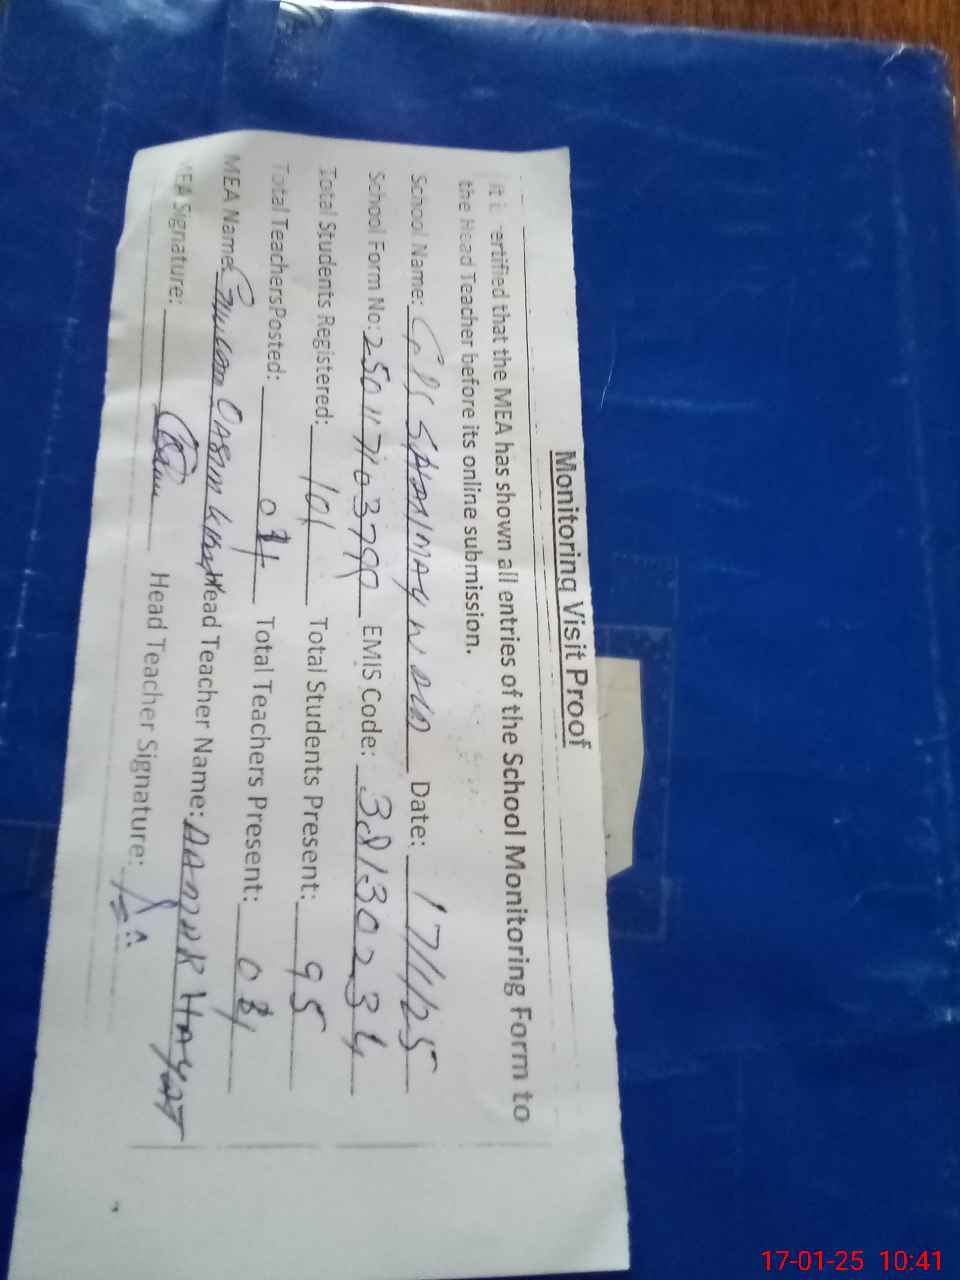 Monitoring Visit Proof
It i ertified that the MEA has shown all entries of the School Monitoring Form to
the Head Teacher before its online submission.
School Name: GPS Date: 17/1/25
School Form No: EMIS Code: 38130234
Total Students Registered: 101 Total Students Present: 95
Total TeachersPosted: 04 Total Teachers Present: 04
MEA Name: Head Teacher Name: HAYAT
MEA Signature: Head Teacher Signature:
17-01-25 10:41